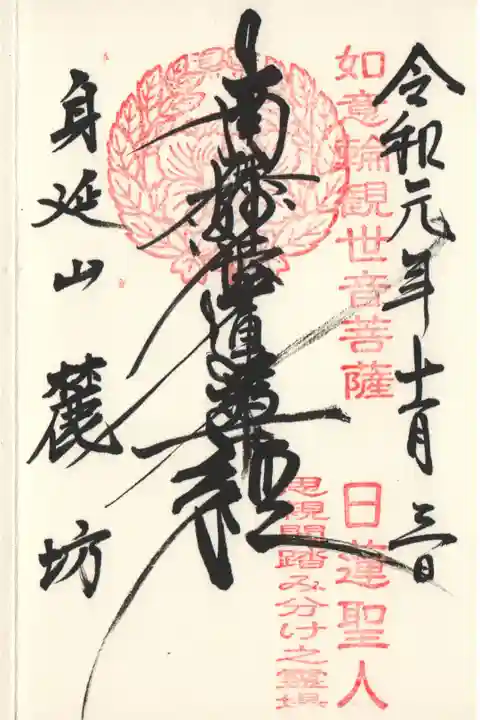 令和元年十一月三日
如意輪觀世音菩薩
日蓮聖人
思親閣踏み分け之靈場
南無妙法蓮華経
身延山 麓坊